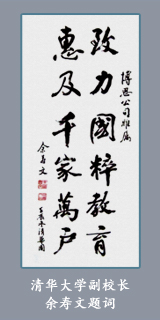 博思公司雅属
致力國粹教育
惠及千家萬户
余寿文
壬辰年清華園
清华大学副校长
余寿文题词